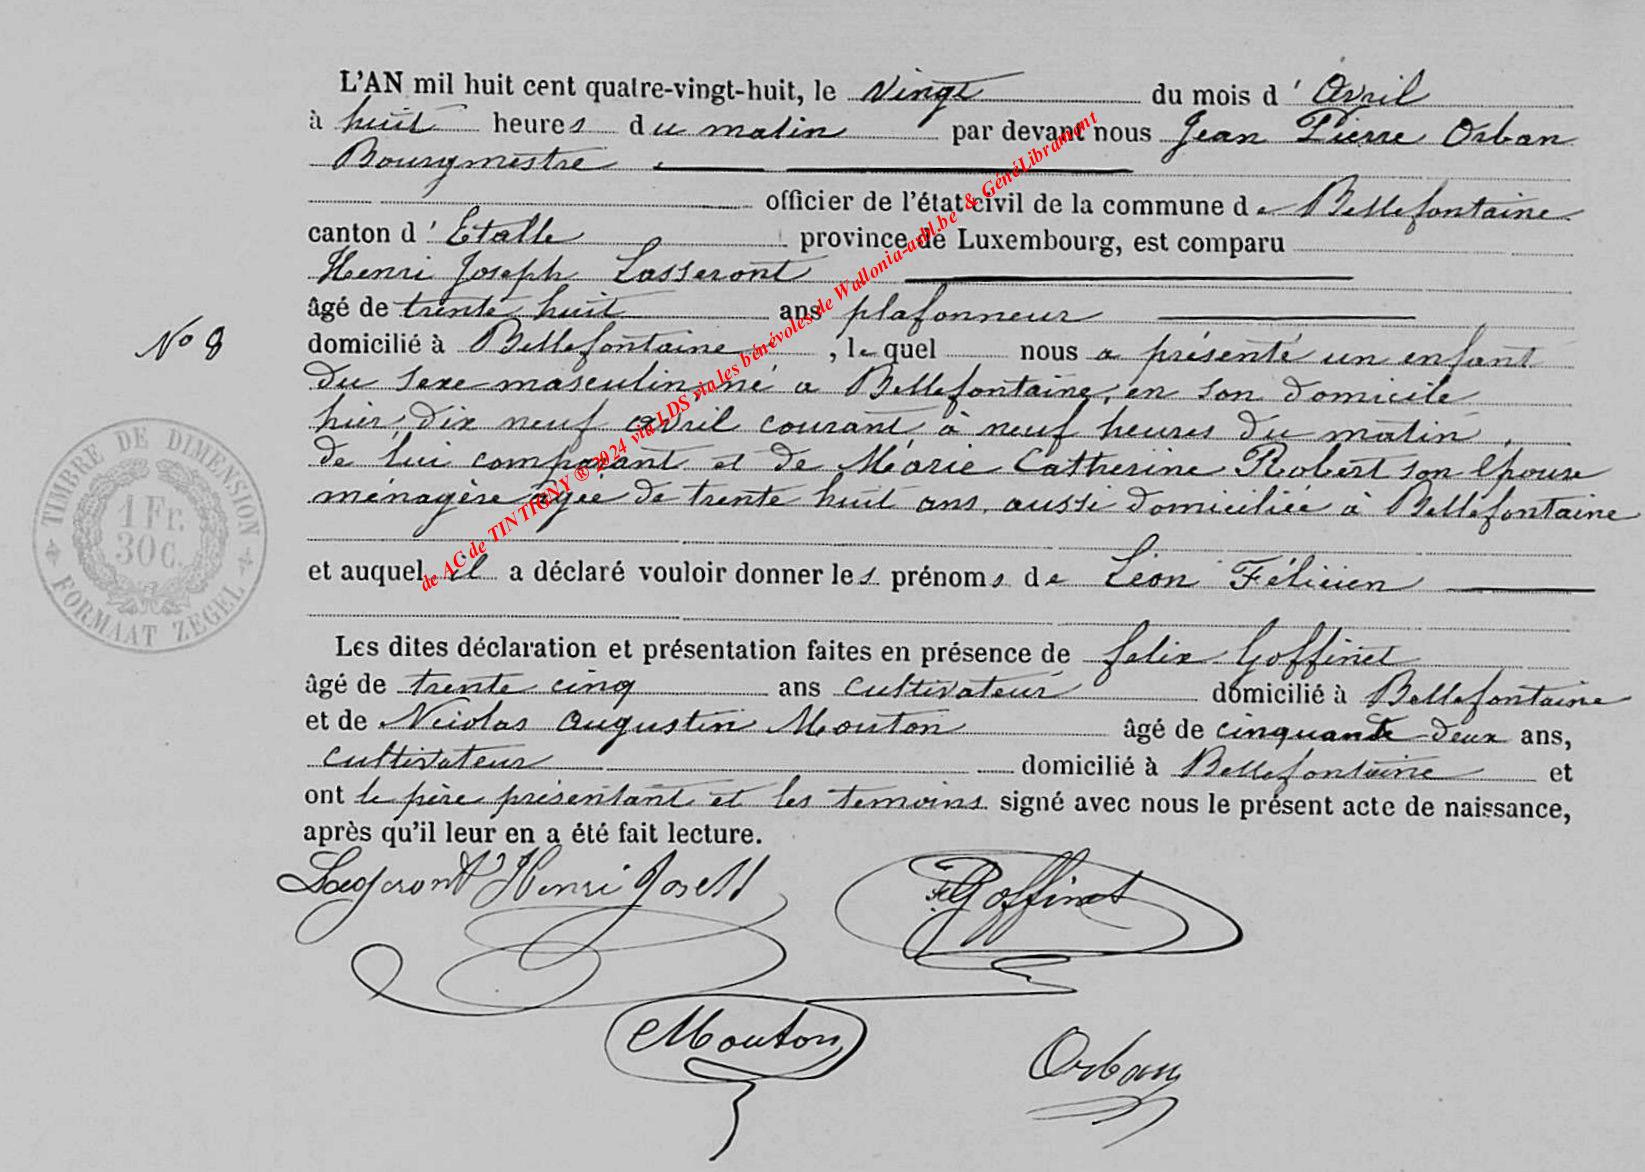 L'AN mil huit cent quatre-vingt-huit, le vingt du mois d'Avril
à huit heures du matin par devant nous Jean Pierre Orban
Bourgmestre
officier de l'état civil de la commune de Bellefontaine
canton d'Etalle province de Luxembourg, est comparu
Henri Joseph Lasseront
âgé de trente huit ans plafonneur
N° 8
domicilié à Bellefontaine, lequel nous a présenté un enfant
du sexe masculin, né a Bellefontaine, en son domicile
hier, dix neuf avril courant, à neuf heures du matin,
de lui comparant et de Marie Catherine Robert son épouse
ménagère agée de trente huit ans, aussi domiciliée à Bellefontaine
et auquel il a déclaré vouloir donner les prénoms de Léon Félicien
Les dites déclaration et présentation faites en présence de felix Goffinet
âgé de trente cinq ans cultivateur domicilié à Bellefontaine
et de Nicolas Augustin Mouton âgé de cinquante-deux ans,
cultivateur domicilié à Bellefontaine et
ont le père présentant et les temoins signé avec nous le présent acte de naissance,
après qu'il leur en a été fait lecture.
Henri Goffinet
Mouton Orban
TIMBRE DE DIMENSION
1 Fr.
30 C.
FORMAAT ZEGEL
de AC de TINTIGNY ® 2024 via LDS via les bénévoles de Wallonia-asbl.be & GénéLibramont